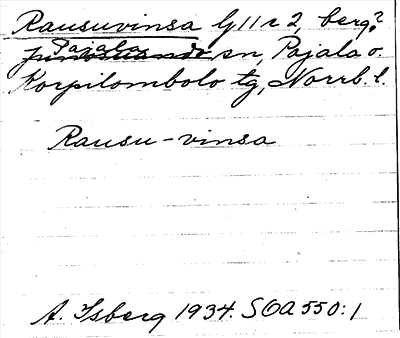 Rausuvinsa G11 r 2, berg?
Junosuando Pajala sn, Pajala o.
Korpilombolo tg, Norrb. l.
Rausu-vinsa
A. Isberg 1934. SOA 550:1